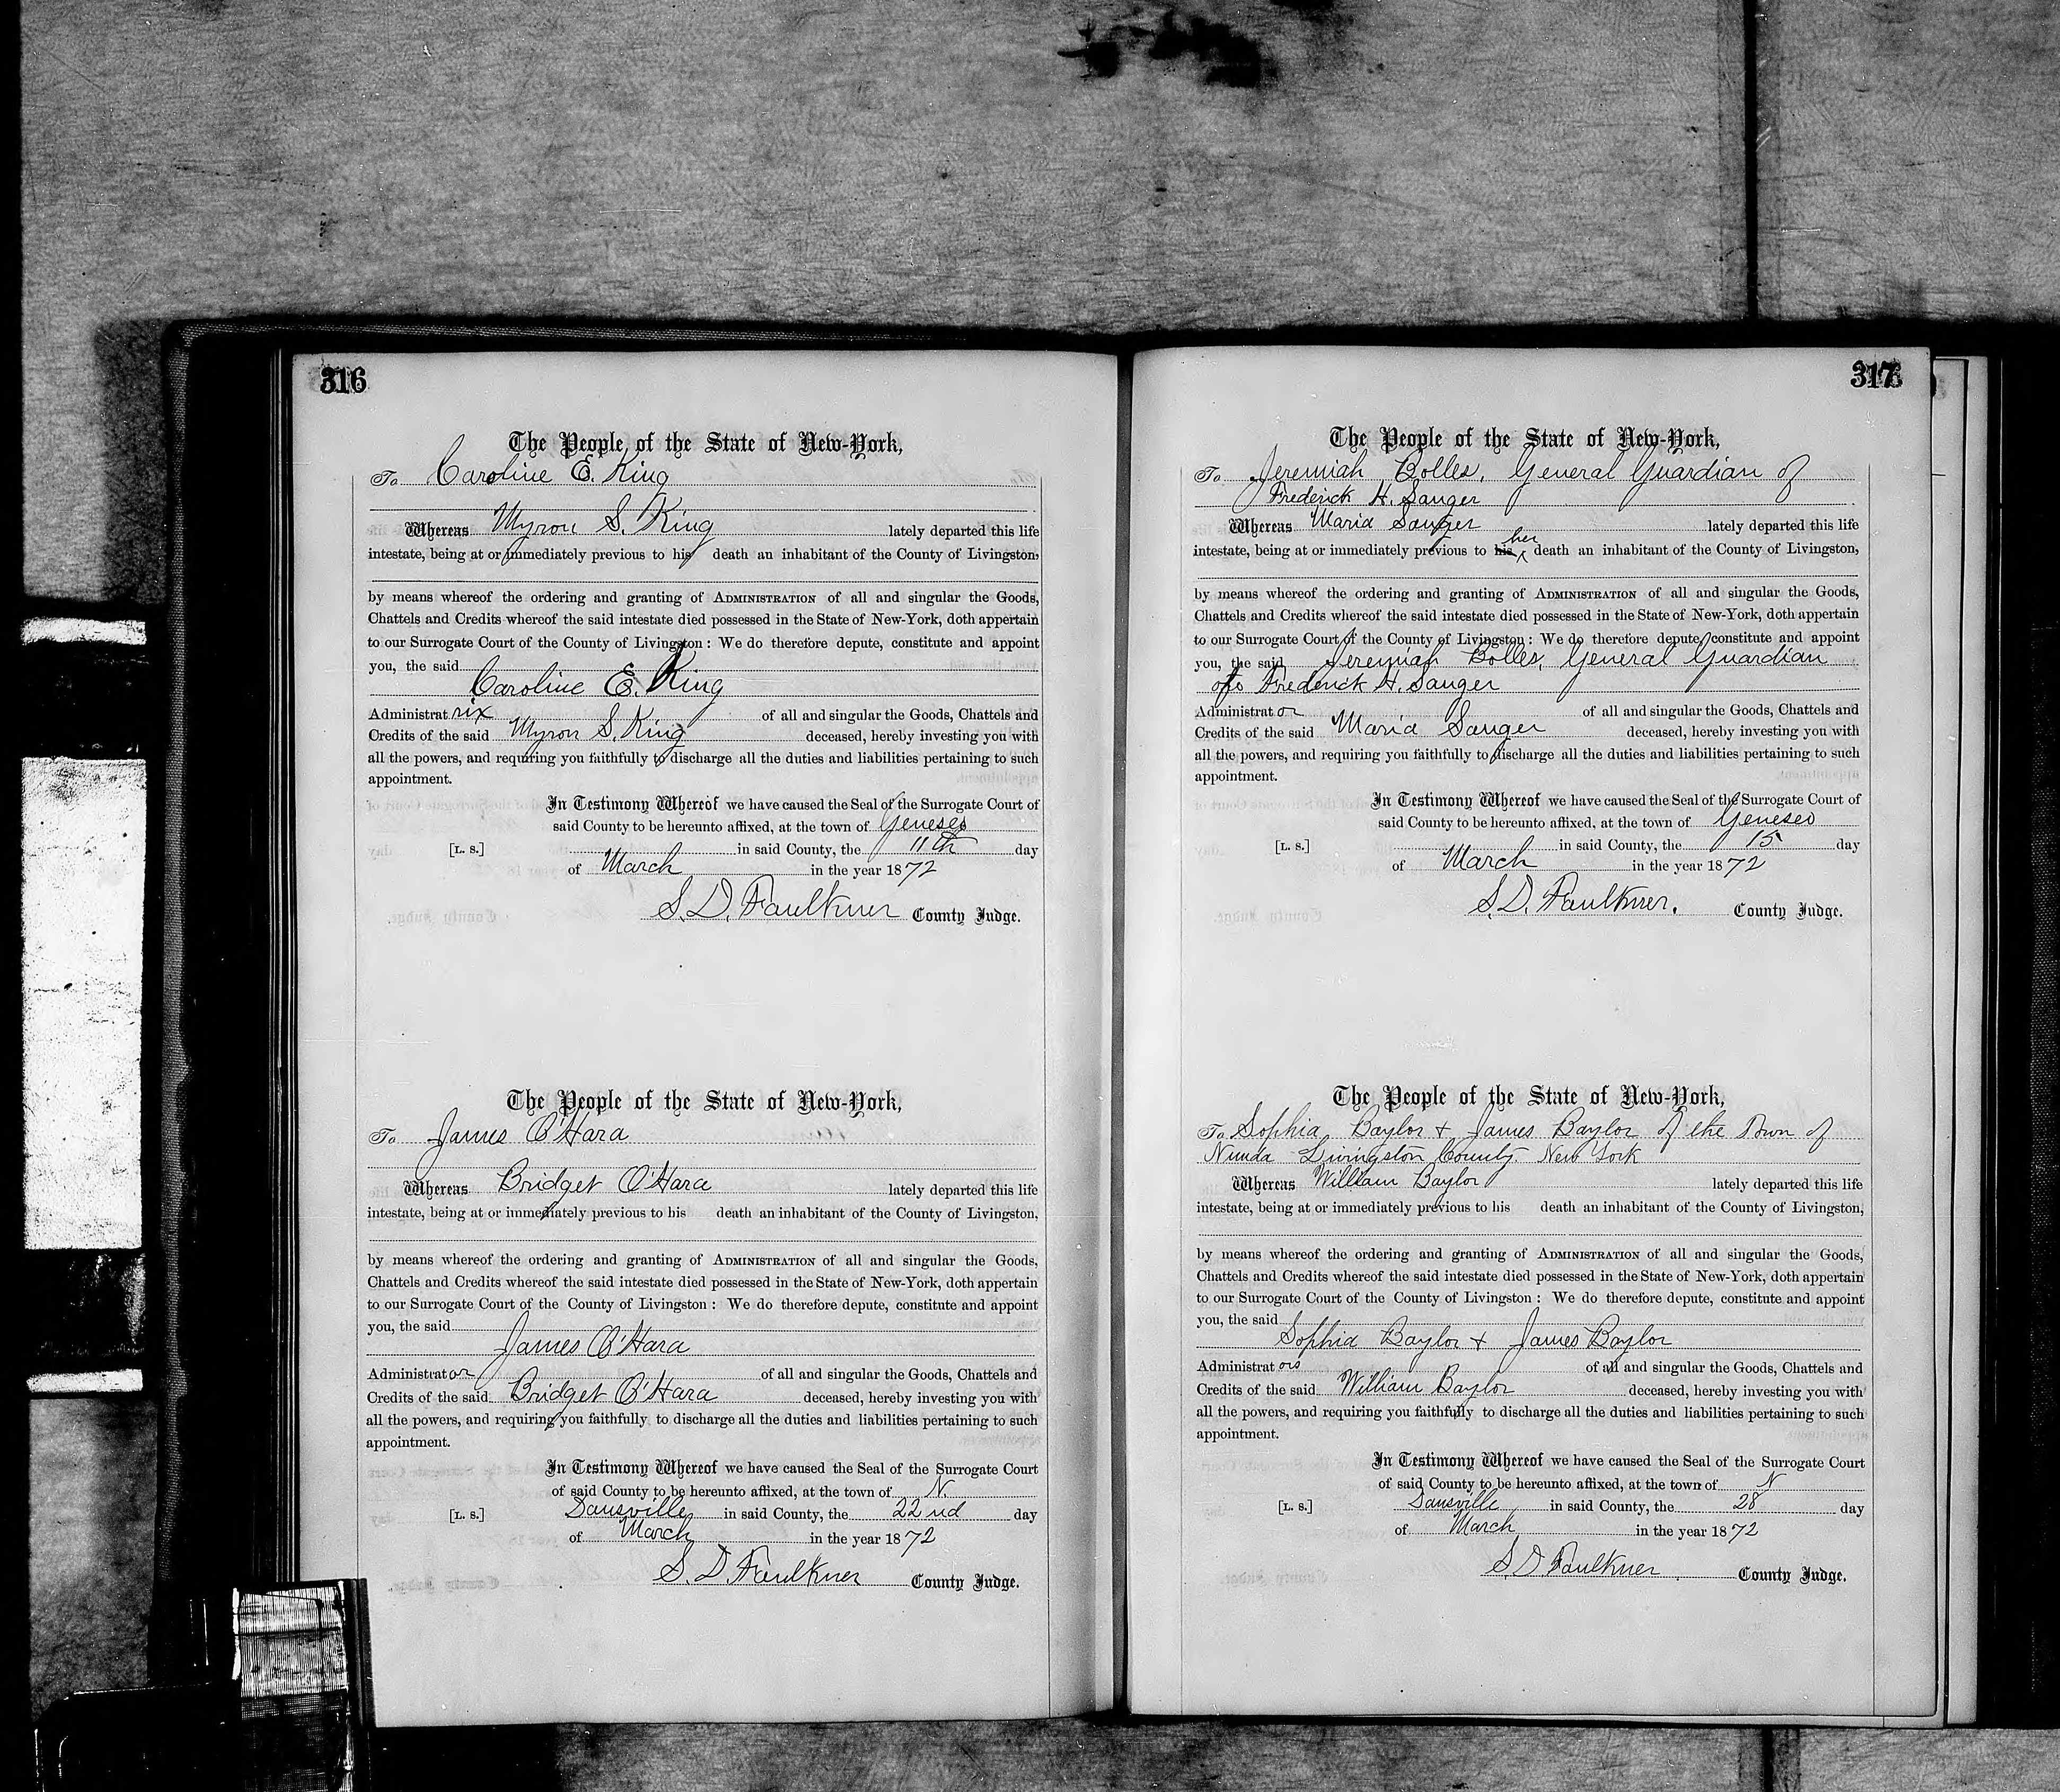 316
The People of the State of New-York,
To Caroline E. King
Whereas Myron S. King lately departed this life
intestate, being at or immediately previous to his death an inhabitant of the County of Livingston,
by means whereof the ordering and granting of ADMINISTRATION of all and singular the Goods,
Chattels and Credits whereof the said intestate died possessed in the State of New-York, doth appertain
to our Surrogate Court of the County of Livingston: We do therefore depute, constitute and appoint
you, the said
Caroline E. King
Administratrix of all and singular the Goods, Chattels and
Credits of the said Myron S. King deceased, hereby investing you with
all the powers, and requiring you faithfully to discharge all the duties and liabilities pertaining to such
appointment.
In Testimony Whereof we have caused the Seal of the Surrogate Court of
said County to be hereunto affixed, at the town of Geneseo
[L. S.] in said County, the 11th day
of March in the year 1872
S. D. Faulkner County Judge.
The People of the State of New-York,
To James O'Hara
Whereas Bridget O'Hara lately departed this life
intestate, being at or immediately previous to his death an inhabitant of the County of Livingston,
by means whereof the ordering and granting of ADMINISTRATION of all and singular the Goods,
Chattels and Credits whereof the said intestate died possessed in the State of New-York, doth appertain
to our Surrogate Court of the County of Livingston: We do therefore depute, constitute and appoint
you, the said
James O'Hara
Administrator of all and singular the Goods, Chattels and
Credits of the said Bridget O'Hara deceased, hereby investing you with
all the powers, and requiring you faithfully to discharge all the duties and liabilities pertaining to such
appointment.
In Testimony Whereof we have caused the Seal of the Surrogate Court
of said County to be hereunto affixed, at the town of N.
[L. S.] Dansville in said County, the 22nd day
of March in the year 1872
S. D. Faulkner County Judge.
317
The People of the State of New-York,
To Jeremiah Bolles, General Guardian of
Frederick H. Sanger
Whereas Maria Sanger lately departed this life
intestate, being at or immediately previous to his her death an inhabitant of the County of Livingston,
by means whereof the ordering and granting of ADMINISTRATION of all and singular the Goods,
Chattels and Credits whereof the said intestate died possessed in the State of New-York, doth appertain
to our Surrogate Court of the County of Livingston: We do therefore depute, constitute and appoint
you, the said Jeremiah Bolles, General Guardian
of Frederick H. Sanger
Administrator of all and singular the Goods, Chattels and
Credits of the said Maria Sanger deceased, hereby investing you with
all the powers, and requiring you faithfully to discharge all the duties and liabilities pertaining to such
appointment.
In Testimony Whereof we have caused the Seal of the Surrogate Court of
said County to be hereunto affixed, at the town of Geneseo
[L. S.] in said County, the 15 day
of March in the year 1872
S. D. Faulkner. County Judge.
The People of the State of New-York,
To Sophia Baylor + James Baylor of the Town of
Nunda Livingston County New York
Whereas William Baylor lately departed this life
intestate, being at or immediately previous to his death an inhabitant of the County of Livingston,
by means whereof the ordering and granting of ADMINISTRATION of all and singular the Goods,
Chattels and Credits whereof the said intestate died possessed in the State of New-York, doth appertain
to our Surrogate Court of the County of Livingston: We do therefore depute, constitute and appoint
you, the said
Sophia Baylor + James Baylor
Administrators of all and singular the Goods, Chattels and
Credits of the said William Baylor deceased, hereby investing you with
all the powers, and requiring you faithfully to discharge all the duties and liabilities pertaining to such
appointment.
In Testimony Whereof we have caused the Seal of the Surrogate Court
of said County to be hereunto affixed, at the town of N
[L. S.] Dansville in said County, the 28 day
of March in the year 1872
S. D Faulkner County Judge.